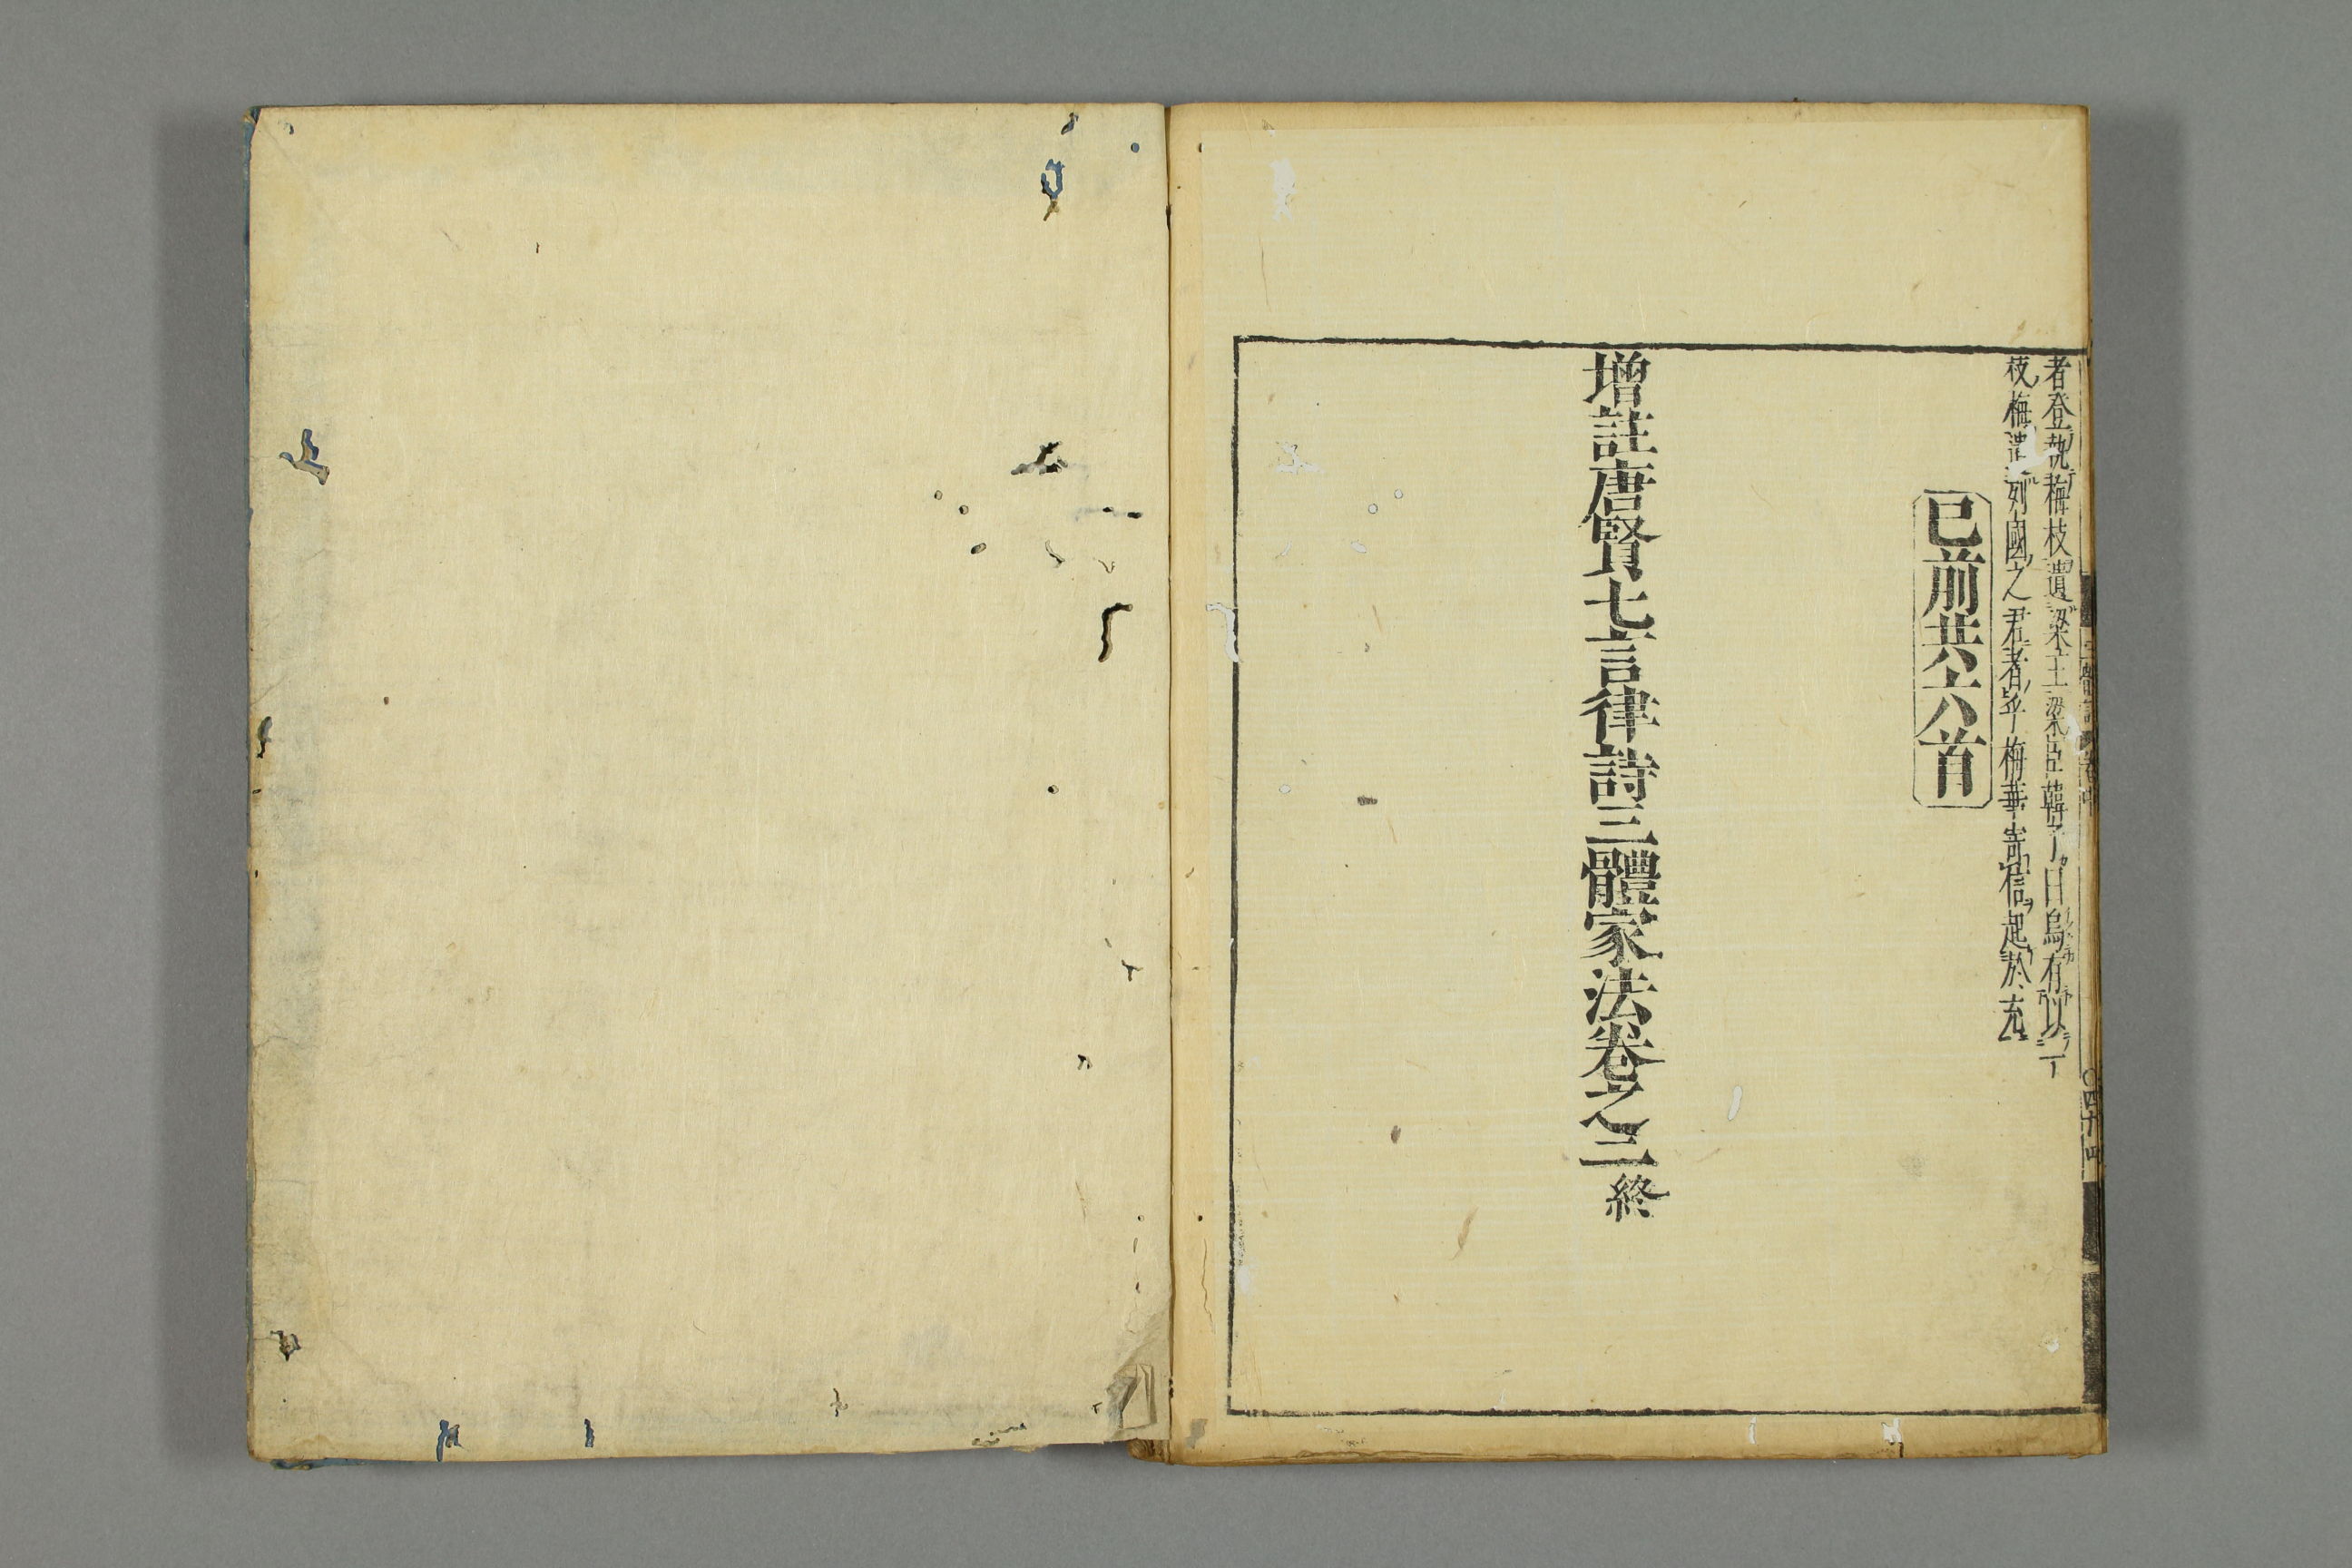 者登執梅枝遺梁王梁臣韓子曰烏有以一
枝梅遺列國之君者乎梅華寄信起於
已前共六首
增註唐賢七言律詩三體家法卷之二終